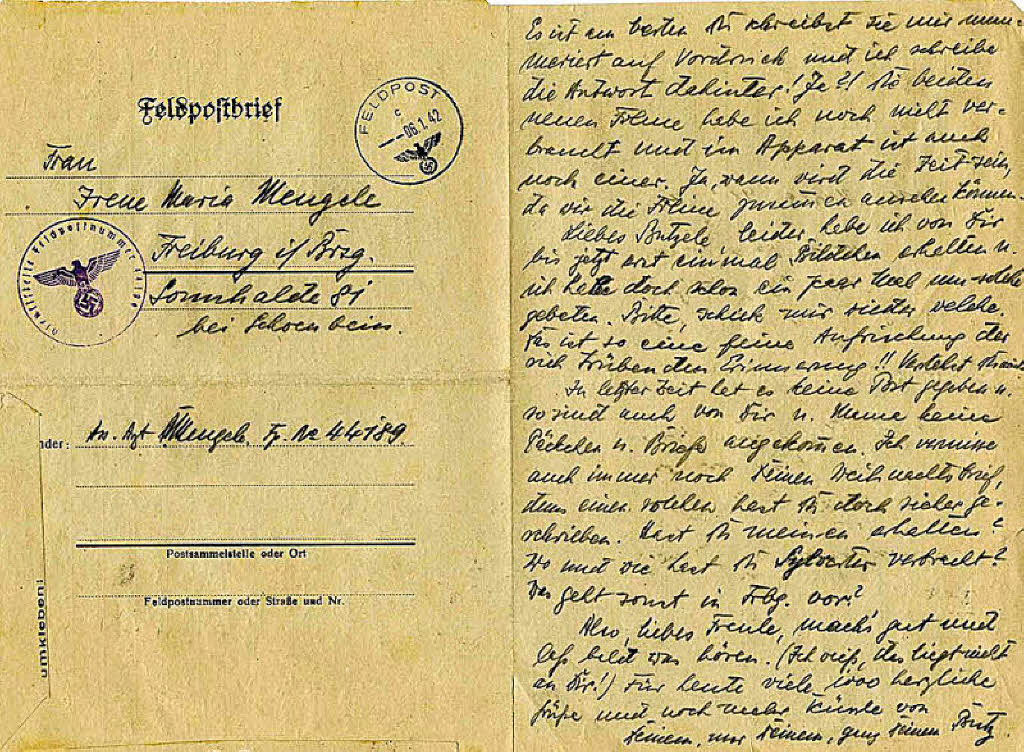 Feldpostbrief
FELDPOST
c
--06.1.42
Frau
Irene Maria Mengele
Freiburg i/Brsg.
Sonnhalde 81
bei Schoenbein.
nder:
Mengele, Fp. No 44189
Postsammelstelle oder Ort
Feldpostnummer oder Straße und Nr.
umkleben!
Es ist am besten Du schreibst sie mir num-
meriert auf Vordruck und ich schreibe
die Antwort dahinter! Ja?! Die beiden
neuen Filme habe ich noch nicht ver-
braucht und im Apparat ist auch
noch einer. Ja, wann wird die Zeit sein,
da wir die Filme zusammen ansehen können.
Liebes Butzele, leider habe ich von Dir
bis jetzt erst einmal Bildchen erhalten u.
ich habe doch schon ein paar Mal um solche
gebeten. Bitte, schick mir wieder welche.
Das ist so eine feine Auffrischung der
sich trübenden Erinnerung!! Verstehst
In letzter Zeit hat es keine Post gegeben u.
so sind auch von Dir u. Mama keine
Päckchen u. Briefe angekommen. Ich vermisse
auch immer noch Deinen Weihnachtsbrief,
denn einen solchen hast Du doch sicher ge-
schrieben. Hast Du meinen erhalten?
Wo und wie hast Du Sylvester verbracht?
Was geht sonst in Frbg. vor?
Also, liebes mach's gut und
laß bald was hören. (Ich weiß, das liegt nicht
an Dir!) Für heute viele 1000 herzliche
Grüße und noch mehr Küsse von
Deinem, nur Deinem, ganz Deinem Butz